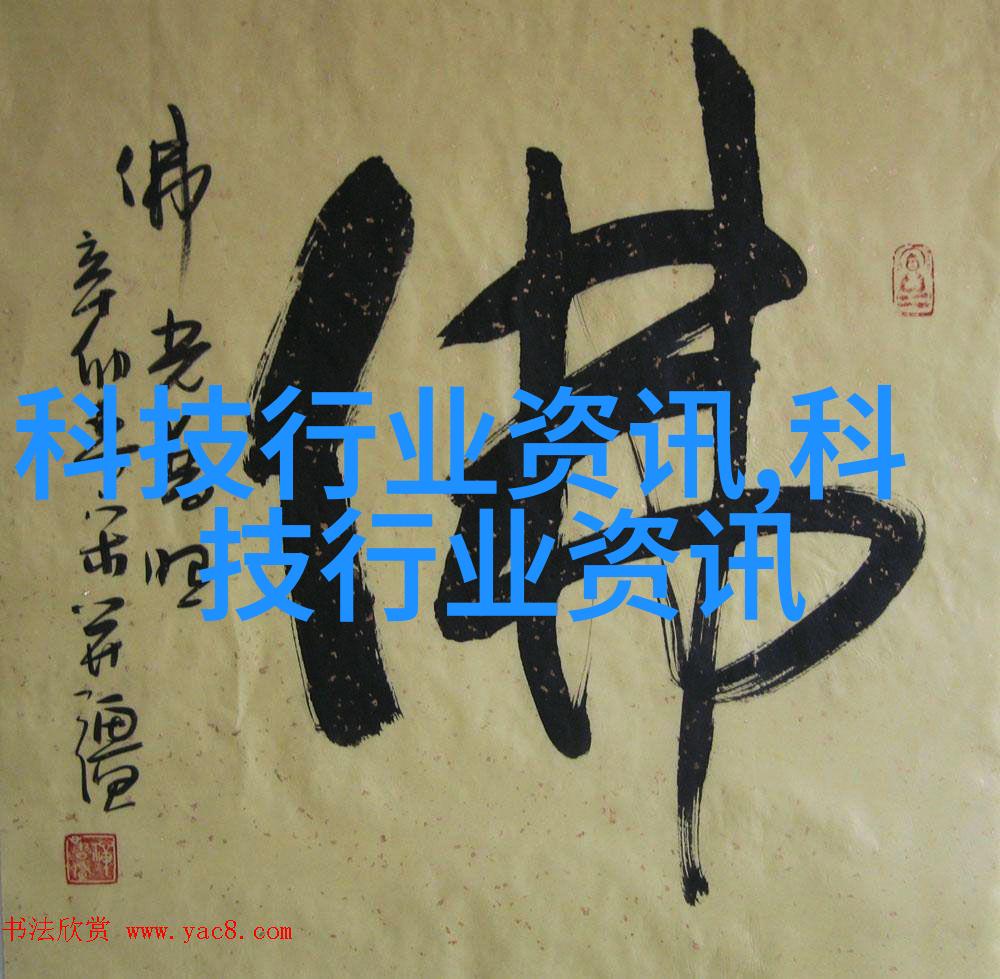 佛
佛
光普照
辛卯年
科技行业资讯,科
技行业资讯
书法欣赏 www.yac8.com